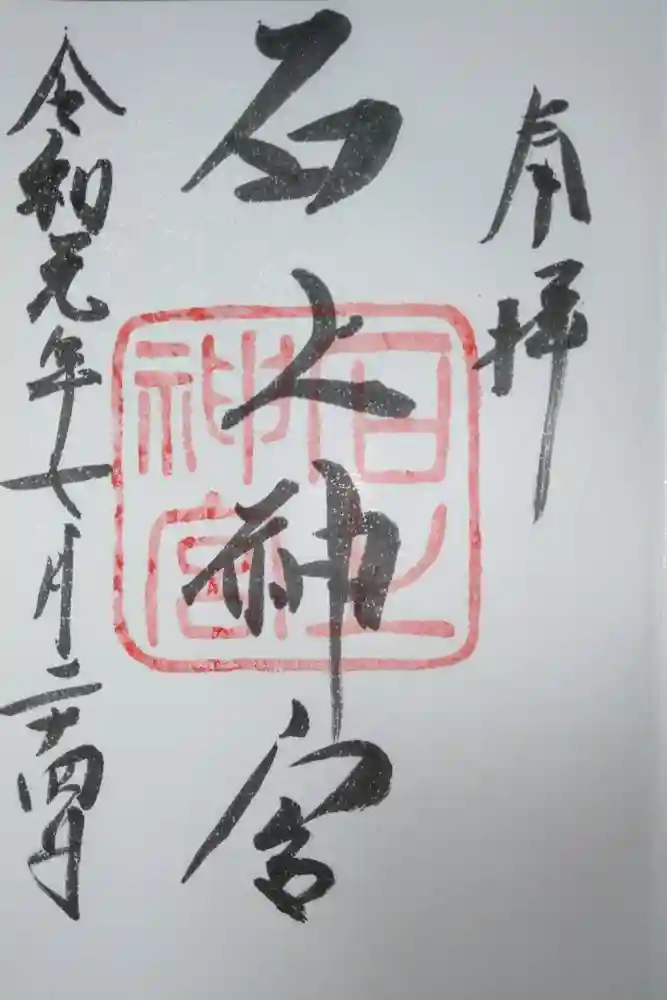 奉拝
石上神宮
石上神宮
令和元年七月二十四日